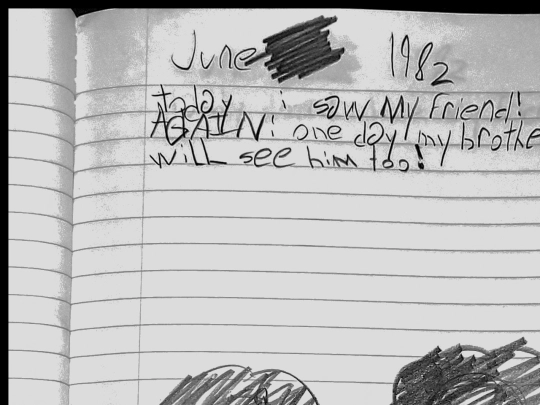 June 1982
today i saw MY friend!
AGAIN! one day my brothe
will see him too!